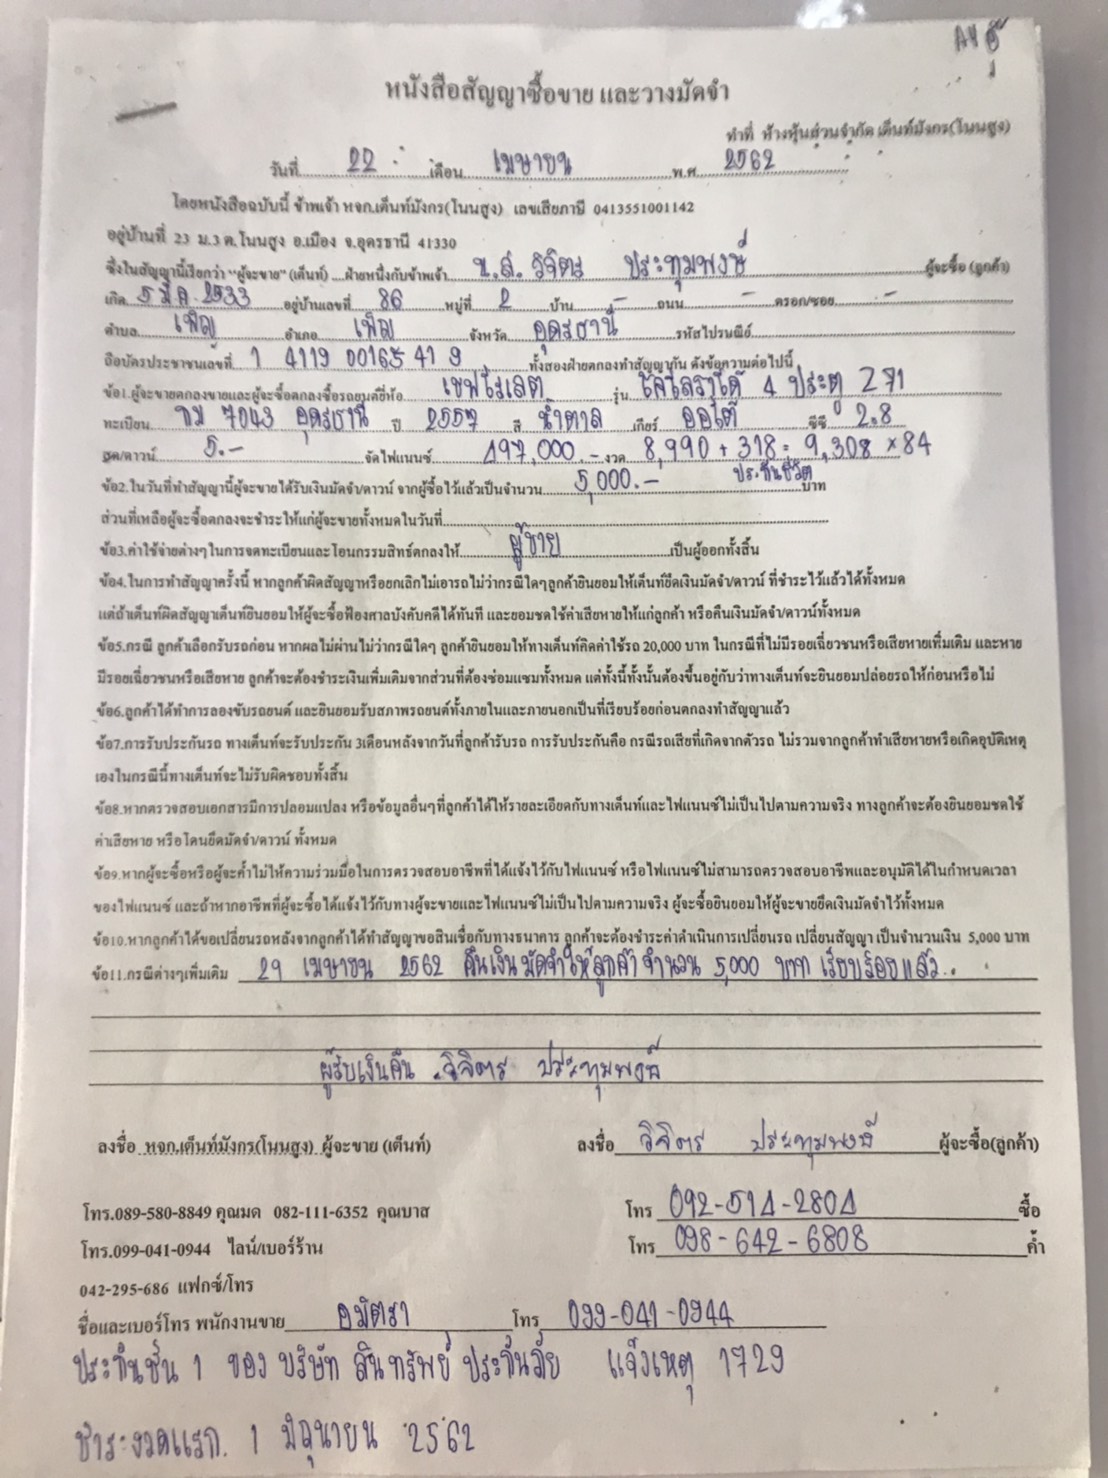 หนังสือสัญญาซื้อขาย และวางมัดจำ
ทำที่ ห้างหุ้นส่วนจำกัด เต็นท์มังกร(โนนสูง)
วันที่ 22 เดือน เมษายน พ.ศ. 2562
โดยหนังสือฉบับนี้ ข้าพเจ้า หจก.เต็นท์มังกร(โนนสูง) เลขเสียภาษี 0413551001142
อยู่บ้านที่ 23 ม.3 ต.โนนสูง อ.เมือง จ.อุดรธานี 41330
ซึ่งในสัญญานี้เรียกว่า "ผู้จะขาย" (เต็นท์) ....ฝ่ายหนึ่งกับข้าพเจ้า น.ส. วิจิตร ประทุมพงษ์ ผู้จะซื้อ (ลูกค้า)
เกิด 5 มี.ค. 2533 อยู่บ้านเลขที่ 86 หมู่ที่ 2 บ้าน - ถนน - ตรอก/ซอย -
ตำบล เพ็ญ อำเภอ เพ็ญ จังหวัด อุดรธานี รหัสไปรษณีย์
ถือบัตรประชาชนเลขที่ 1 4119 00165 41 9 ทั้งสองฝ่ายตกลงทำสัญญากัน ดังข้อความต่อไปนี้
ข้อ1.ผู้จะขายตกลงขายและผู้จะซื้อตกลงซื้อรถยนต์ยี่ห้อ เชฟโรเลต รุ่น โคโลราโด้ 4 ประตู Z71
ทะเบียน 7043 อุดรธานี ปี 2557 สี น้ำตาล เกียร์ ออโต้ ซีซี 2.8
ชุด/ดาวน์ 5.- จัดไฟแนนซ์ 497,000.- งวด 8,990 + 318 = 9,308 × 84
ประกันชีวิต
ข้อ2.ในวันที่ทำสัญญานี้ผู้จะขายได้รับเงินมัดจำ/ดาวน์ จากผู้ซื้อไว้แล้วเป็นจำนวน 5,000.- บาท
ส่วนที่เหลือผู้จะซื้อตกลงจะชำระให้แก่ผู้จะขายทั้งหมดในวันที่
ข้อ3.ค่าใช้จ่ายต่างๆในการจดทะเบียนและโอนกรรมสิทธ์ตกลงให้ ผู้ขาย เป็นผู้ออกทั้งสิ้น
ข้อ4.ในการทำสัญญาครั้งนี้ หากลูกค้าผิดสัญญาหรือยกเลิกไม่เอารถ ไม่ว่ากรณีใดๆลูกค้ายินยอมให้เต็นท์ยึดเงินมัดจำ/ดาวน์ ที่ชำระไว้แล้วได้ทั้งหมด
แต่ถ้าเต็นท์ผิดสัญญาเต็นท์ยินยอมให้ผู้จะซื้อฟ้องศาลบังคับคดีได้ทันที และยอมชดใช้ค่าเสียหายให้แก่ลูกค้า หรือคืนเงินมัดจำ/ดาวน์ทั้งหมด
ข้อ5.กรณี ลูกค้าเลือกรับรถก่อน หากผลไม่ผ่านไม่ว่ากรณีใดๆ ลูกค้ายินยอมให้ทางเต็นท์คิดค่าใช้รถ 20,000 บาท ในกรณีที่ไม่มีรอยเฉี่ยวชนหรือเสียหายเพิ่มเติม และหาย
มีรอยเฉี่ยวชนหรือเสียหาย ลูกค้าจะต้องชำระเงินเพิ่มเติมจากส่วนที่ต้องซ่อมแซมทั้งหมด แต่ทั้งนี้ทั้งนั้นต้องขึ้นอยู่กับว่าทางเต็นท์จะยินยอมปล่อยรถให้ก่อนหรือไม่
ข้อ6.ลูกค้าได้ทำการลองขับรถยนต์ และยินยอมรับสภาพรถยนต์ทั้งภายในและภายนอกเป็นที่เรียบร้อยก่อนตกลงทำสัญญาแล้ว
ข้อ7.การรับประกันรถ ทางเต็นท์จะรับประกัน 3เดือนหลังจากวันที่ลูกค้ารับรถ การรับประกันคือ กรณีรถเสียที่เกิดจากตัวรถ ไม่รวมจากลูกค้าทำเสียหายหรือเกิดอุบัติเหตุ
เองในกรณีนี้ทางเต็นท์จะไม่รับผิดชอบทั้งสิ้น
ข้อ8.หากตรวจสอบเอกสารมีการปลอมแปลง หรือข้อมูลอื่นๆที่ลูกค้าได้ให้รายละเอียดกับทางเต็นท์และไฟแนนซ์ไม่เป็นไปตามความจริง ทางลูกค้าจะต้องยินยอมชดใช้
ค่าเสียหาย หรือโดนยึดมัดจำ/ดาวน์ ทั้งหมด
ข้อ9.หากผู้จะซื้อหรือผู้จะค้ำไม่ให้ความร่วมมือในการตรวจสอบอาชีพที่ได้แจ้งไว้กับไฟแนนซ์ หรือไฟแนนซ์ไม่สามารถตรวจสอบอาชีพและอนุมัติได้ในกำหนดเวลา
ของไฟแนนซ์ และถ้าหากอาชีพที่ผู้จะซื้อได้แจ้งไว้กับทางผู้จะขายและไฟแนนซ์ไม่เป็นไปตามความจริง ผู้จะซื้อยินยอมให้ผู้จะขายยึดเงินมัดจำไว้ทั้งหมด
ข้อ10.หากลูกค้าได้ขอเปลี่ยนรถหลังจากลูกค้าได้ทำสัญญาขอสินเชื่อกับทางธนาคาร ลูกค้าจะต้องชำระค่าดำเนินการเปลี่ยนรถ เปลี่ยนสัญญา เป็นจำนวนเงิน 5,000 บาท
ข้อ11.กรณีต่างๆเพิ่มเติม 29 เมษายน 2562 คืนเงินมัดจำให้ลูกค้า จำนวน 5,000 บาท เรียบร้อยแล้ว..
ผู้รับเงินคืน วิจิตร ประทุมพงษ์
ลงชื่อ หจก.เต็นท์มังกร(โนนสูง) ผู้จะขาย (เต็นท์) ลงชื่อ วิจิตร ประทุมพงษ์ ผู้จะซื้อ(ลูกค้า)
โทร.089-580-8849 คุณมด 082-111-6352 คุณบาส โทร 092-514-2804 ซื้อ
โทร.099-041-0944 ไลน์/เบอร์ร้าน โทร 098-642-6808 ค้ำ
042-295-686 แฟกซ์/โทร
ชื่อและเบอร์โทร พนักงานขาย อมิตรา โทร 099-041-0944
ประกันชั้น 1 ของ บริษัท สินทรัพย์ ประกันภัย แจ้งเหตุ 1729
ชำระงวดแรก. 1 มิถุนายน 2562